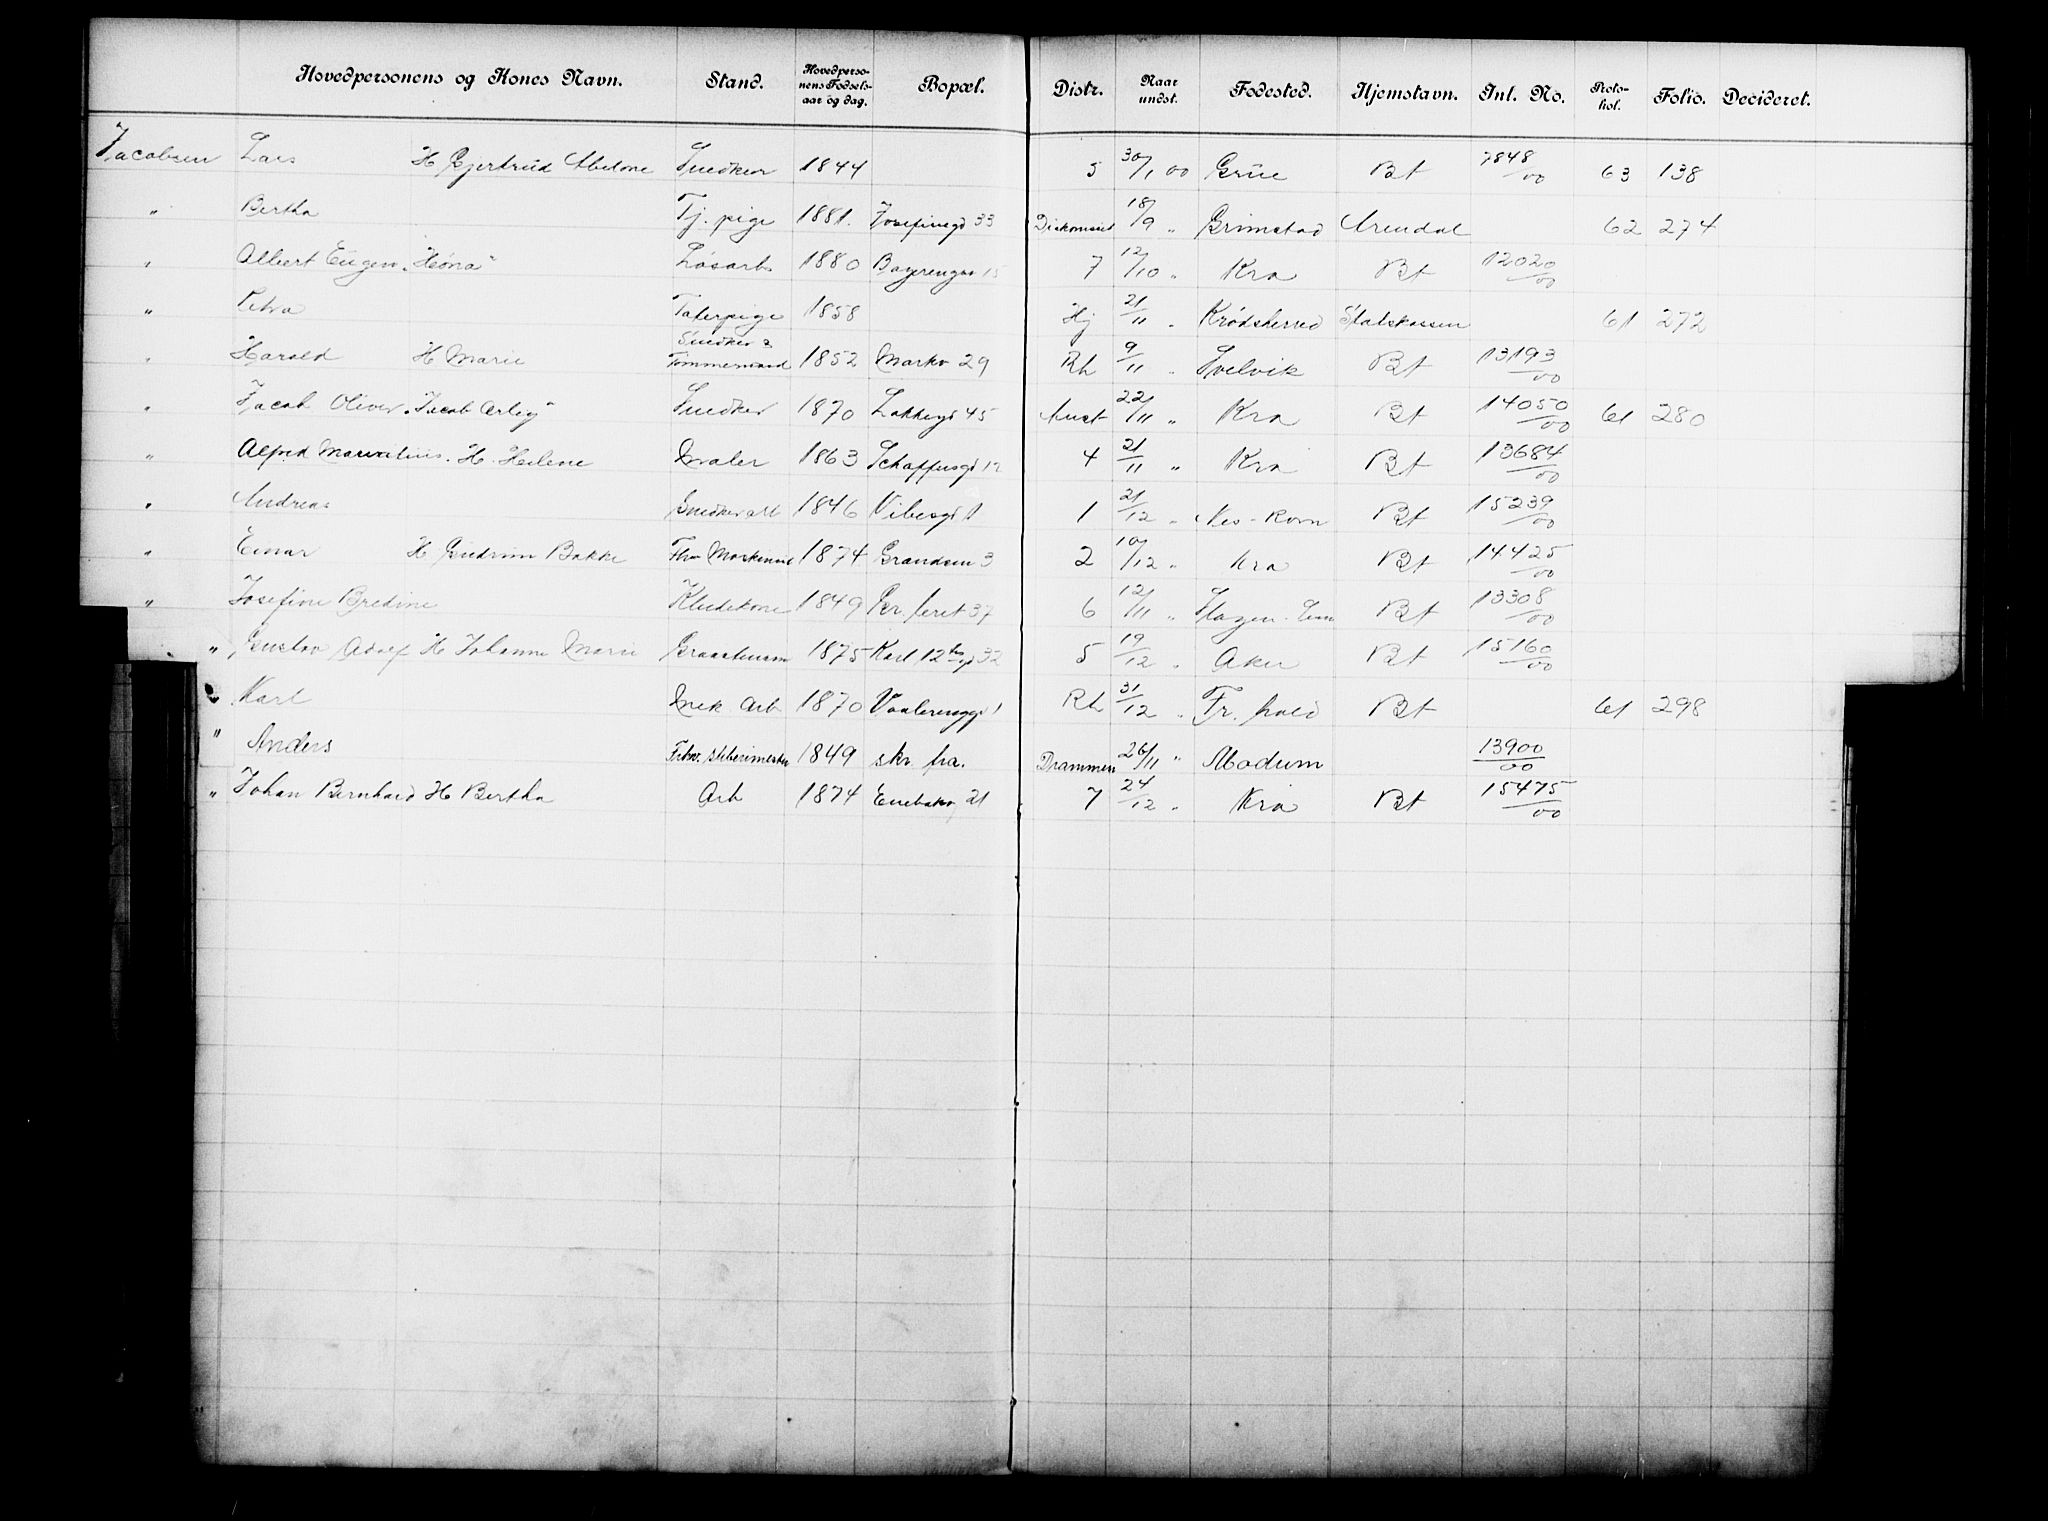 Hovedpersonens og Kones Navn. Stand. Hovedperso-nens Fødsels-aar og dag. Bopæl. Distr. Naar undst. Fødested. Hjemstavn. Inl. No. Proto-kol. Folio. Decideret.
Jacobsen Lars H Gjertrud Abelone Snedker 1844 5 30/1 00 Grue Bt 7848/00 63 138
" Bertha Tj. pige 1881. Josefinegd 33 18/9 " Grimstad Arendal 62 274
" Albert Eugen "Høna" Løsarb 1880 15 7 12/10 " Kra Bt 12020/00
" Petra Taterpige 1858 Hj 21/11 " Krødsherred Statskassen 61 272
" Harald H Marie Snedker & Tømmermand 1852 Markv 29 Rh 9/11 " Svelvik Bt 13193/00
" Jacob Oliver "Jacob Arbig" Snedker 1870 Lakkegd 45 Anst 22/11 " Kra Bt 14050/00 61 280
" Alfred H. Helene Maler 1863 12 4 21/11 " Kra Bt 13684/00
" Andreas Snedkerarb 1846 Vibesgd 1 1 21/12 " Nes - Rom Bt 15239/00
" Einar H Gudrun Bakke 1874 Grandsen 3 2 10/12 " Kra Bt 14425/00
" Josefine Bredine Kludekone 1849 37 6 12/11 " Slagen Bt 13308/00
" Gustav Adolf H Johanne Marie Graastensm 1875 Karl 12tes gd 32 5 19/12 " Aker Bt 15160/00
" Karl Mek. Arb 1870 Vaalerenggd 1 Rh 31/12 " Fr. hald Bt 61 298
" Anders Fhv. stiberimester 1849 skr. fra. Drammen 26/11 " Modum 13900/00
" Johan Bernhard H Bertha Arb 1874 Enebakv 21 7 24/12 " Kra Bt 15475/00